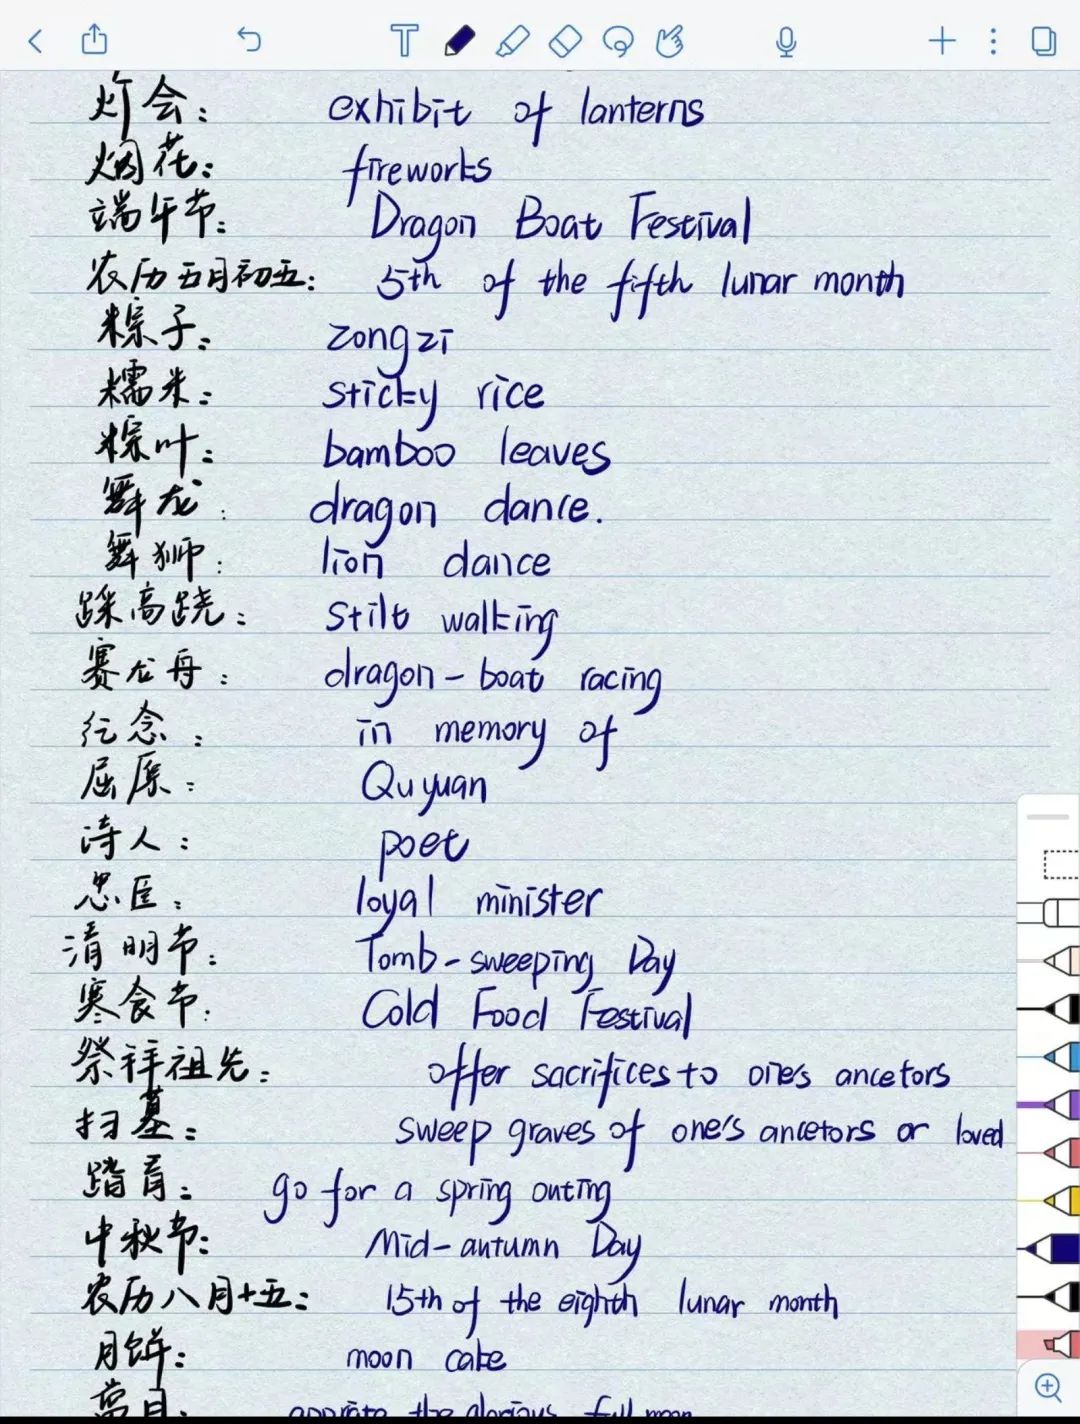 灯会： exhibit of lanterns
烟花： fireworks
端午节： Dragon Boat Festival
农历五月初五： 5th of the fifth lunar month
粽子： zongzi
糯米： sticky rice
粽叶： bamboo leaves
舞龙： dragon dance.
舞狮： lion dance
踩高跷： stilt walking
赛龙舟： dragon-boat racing
纪念： in memory of
屈原： Qu yuan
诗人： poet
忠臣： loyal minister
清明节： Tomb-sweeping Day
寒食节： Cold Food Festival
祭祥祖先： offer sacrifices to one's ancetors
扫墓： sweep graves of one's ancetors or loved
踏青： go for a spring outing
中秋节： Mid-autumn Day
农历八月十五： 15th of the eighth lunar month
月饼： moon cake
赏月： the glorious full moon